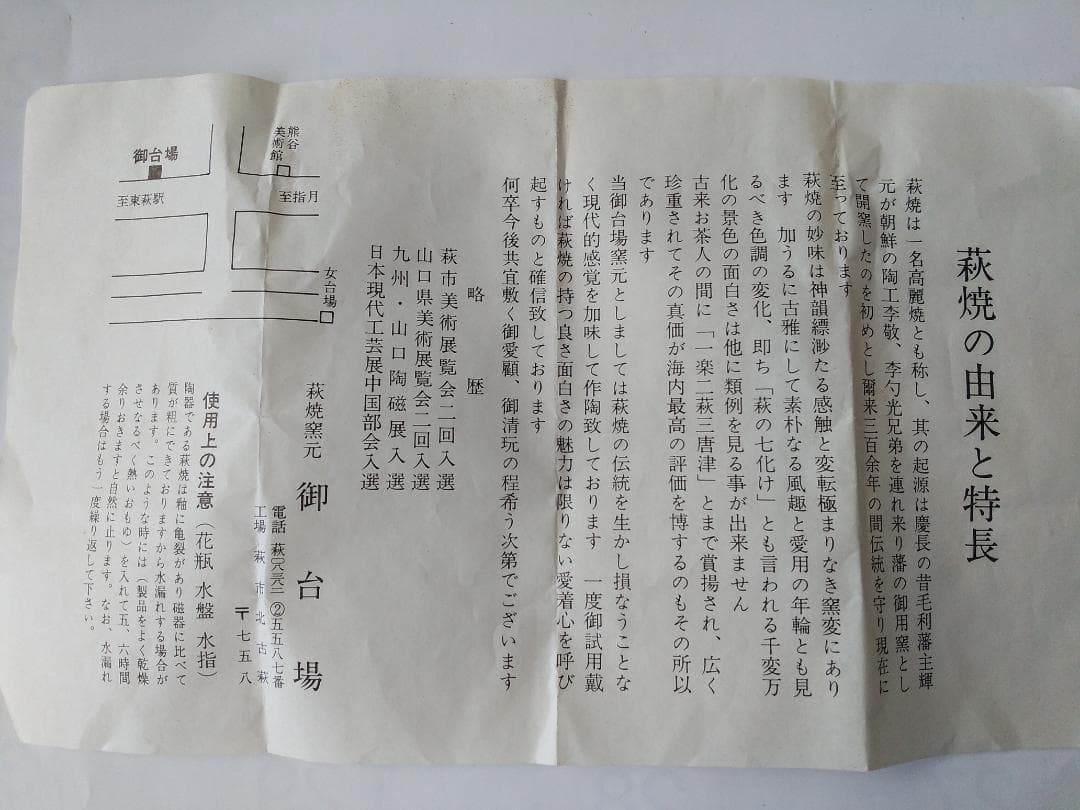 萩焼の由来と特長
萩焼は一名高麗焼とも称し、其の起源は慶長の昔毛利藩主輝
元が朝鮮の陶工李敬、李勺光兄弟を連れ来り藩の御用窯とし
て開窯したのを初めとし爾来三百余年の間伝統を守り現在に
至っております
萩焼の妙味は神韻縹渺たる感触と変転極まりなき窯変にあり
ます 加うるに古雅にして素朴なる風趣と愛用の年輪とも見
るべき色調の変化、即ち「萩の七化け」とも言われる千変万
化の景色の面白さは他に類例を見る事が出来ません
古来お茶人の間に「一楽二萩三唐津」とまで賞揚され、広く
珍重されてその真価が海内最高の評価を博するのもその所以
であります
当御台場窯元としましては萩焼の伝統を生かし損なうことな
く現代的感覚を加味して作陶致しております 一度御試用戴
ければ萩焼の持つ良さ面白さの魅力は限りない愛着心を呼び
起すものと確信致しております
何卒今後共宜敷く御愛顧、御清玩の程希う次第でございます
略歴
萩市美術展覧会二回入選
山口県美術展覧会二回入選
九州・山口陶磁展入選
日本現代工芸展中国部会入選
萩焼窯元 御台場
電話 萩 ②五五八七番
工場 萩市北古萩
〒七五八
使用上の注意(花瓶 水盤 水指)
陶器である萩焼は釉に亀裂があり磁器に比べて
質が粗にできておりますから水漏れする場合が
あります。このような時には(製品をよく乾燥
させなるべく熱いおもゆ)を入れて五、六時間
余りおきますと自然に止ります。なお、水漏れ
する場合はもう一度繰り返して下さい。
熊谷
美術館
御台場
至東萩駅
至指月
女台場